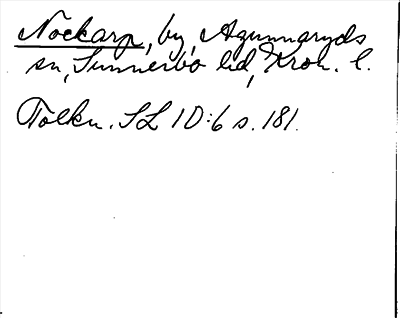 Nockarp, by, Agunnaryds
sn, Sunnerbo hd, Kron. l.
Tolkn. SL 10:6 s. 181.